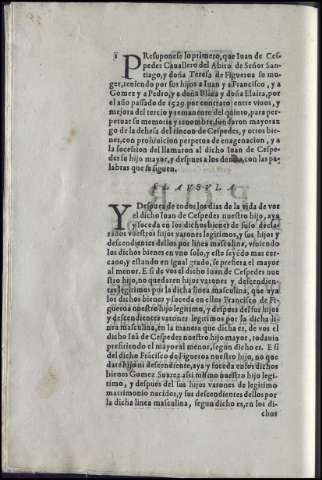 1 PResuponese lo primero, que Iuan de Ces-
pedes Cavallero del Abito de Señor San-
tiago, y doña Teresa de Figueroa su mu-
ger, teniendo por sus hijos a Iuan y a Francisco, y a
Gomez y a Pedro, y a doña Blãca y doña Elvira, por
el año passado de 1529. por contrato entre vivos, y
mejora del tercio y remanente del quinto, para per-
petuar se memoria y renombre, fundaron mayoraz-
go de la dehesa del rincon de Cespedes, y otros bie-
nes, con prohibicion perpetua de enagenacion, y a
la sucession del llamaron al dicho Iuan de Cespe-
des su hijo mayor, y despues a los demàs, con las pa-
labras que se siguen.
CLAVSVLA
Y Despues de todos los dias de la vida de vos
el dicho Iuan de Cespedes nuestro hijo, aya
y suceda en los dichos bienes de suso decla-
rados vuestros hijos varones legitimos, y sus hijos y
descendientes dellos por linea masculina, viniendo
los dichos bienes en vno solo, y este seyẽdo mas cer-
cano, y estando en igual grado, se prefiera el mayor
al menor. E si de vos el dicho Iuan de Cespedes nue-
stro hijo, no quedaren hijos varones y descendien-
tes legitimos por la dicha linea masculina, que aya
los dichos bienes y suceda en ellos Francisco de Fi-
gueroa nuestro hijo legitimo, y despues del sus hijos
y descendientes varones legitimos por la dicha li-
nea masculina, en la manera que dicha es, de vos el
dicho Iuã de Cespedes nuestro hijo mayor, todavia
prefiriendo el mayor al menor, segun dicho es. E si
del dicho Frãcisco de Figueroa nuestro hijo, no que
dare hijo ni descendiente, aya y suceda en los dichos
bienes Gomez Suarez assi mismo nuestro hijo legi-
timo, y despues del sus hijos varones de legitimo
matrimonio nacidos, y sus descendientes dellos por
la dicha linea masculina, segun dicho es, en los di-
chos